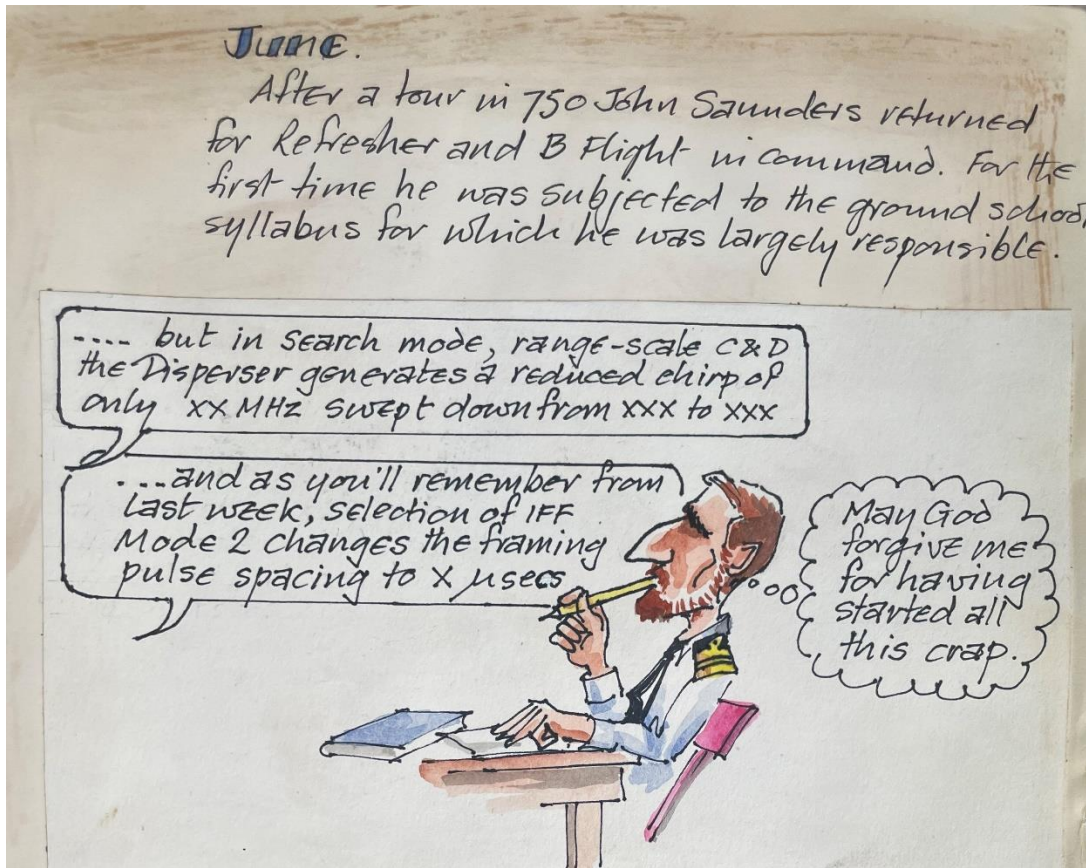 June.
After a tour in 750 John Saunders returned
for Refresher and B Flight in command. For the
first time he was subjected to the ground school
syllabus for which he was largely responsible.
.... but in search mode, range-scale C&D
the Disperser generates a reduced chirp of
only xx MHz swept down from xxx to xxx
....and as you'll remember from
last week, selection of IFF
Mode 2 changes the framing
pulse spacing to X µsecs
May God
forgive me
for having
started all
this crap.